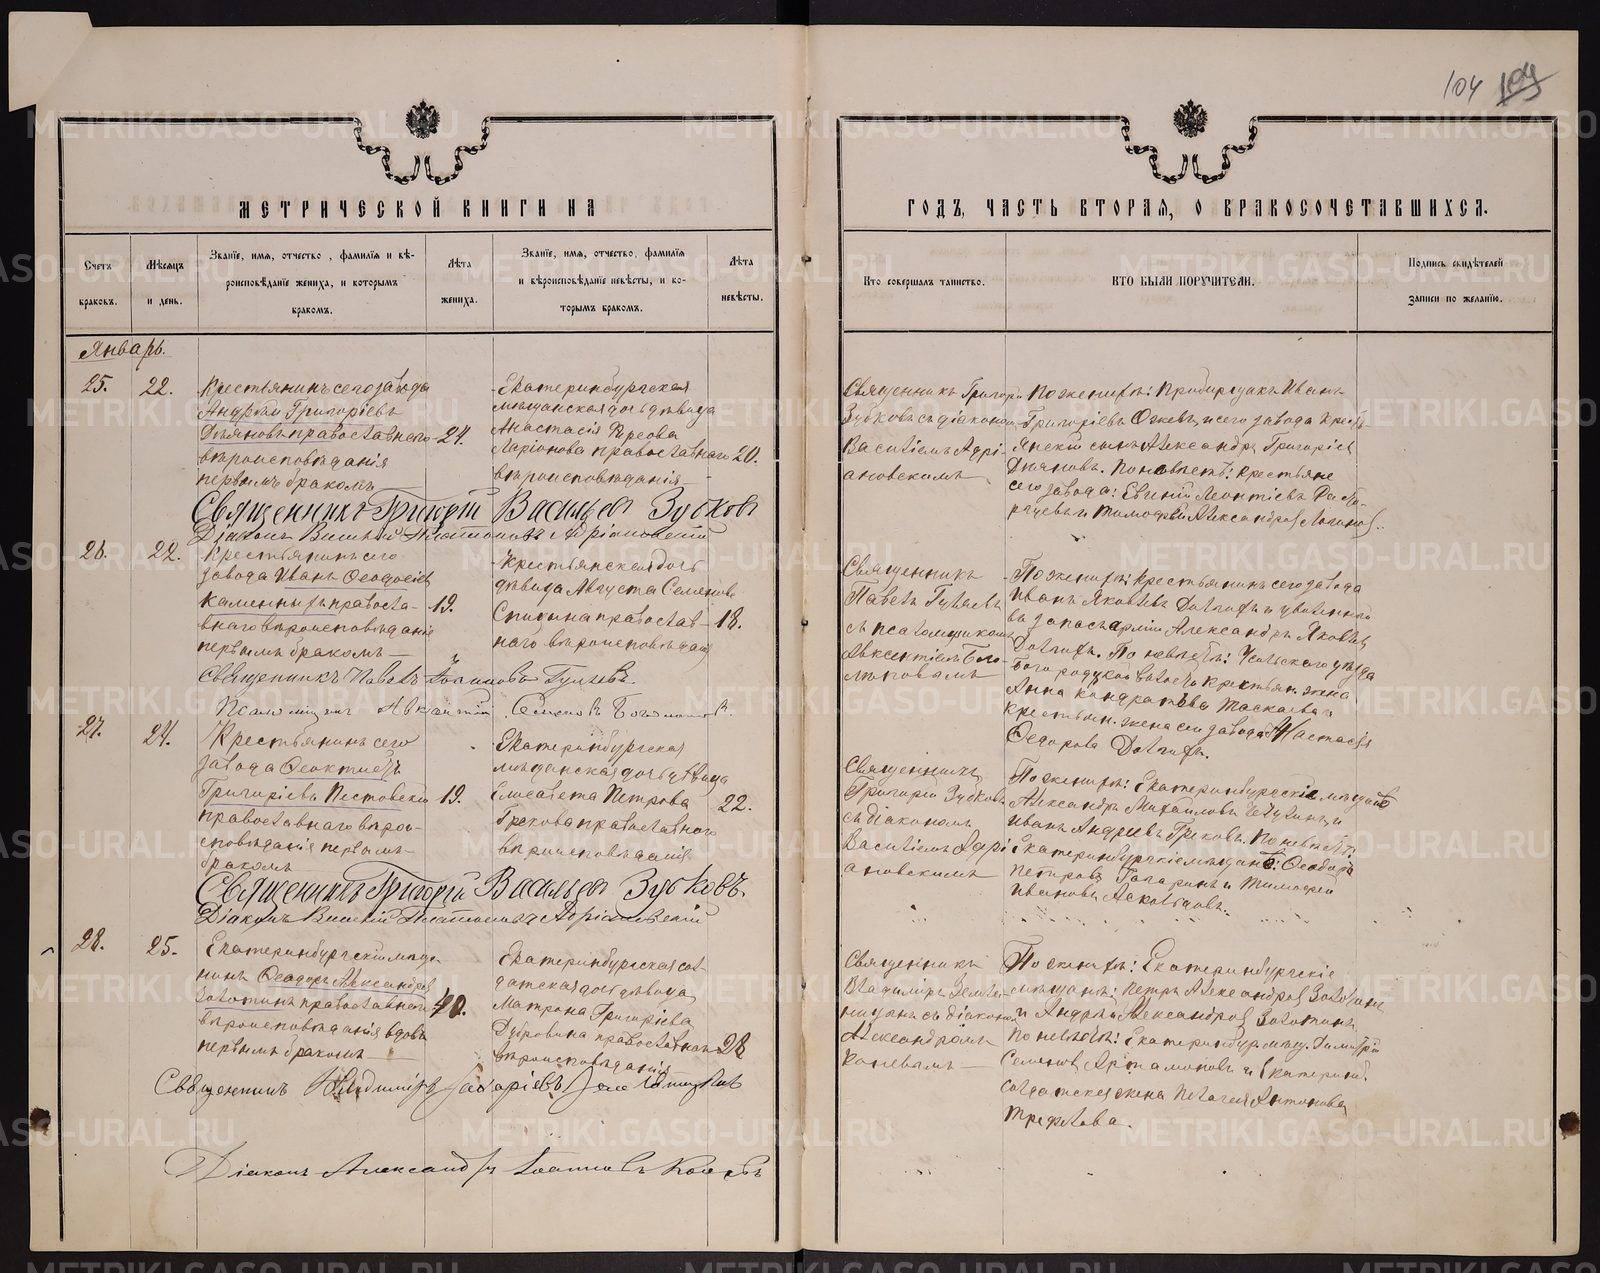 104 104
МЕТРИЧЕСКОЙ КНИГИ НА
ГОДЪ, ЧАСТЬ ВТОРАЯ, О БРАКОСОЧЕТАВШИХСЯ.
Счетъ браковъ.
Мѣсяцъ и день.
Званїе, имя, отчество, фамилїя и вѣ-
роисповѣданїе жениха, и которымъ
бракомъ.
Лѣта
жениха.
Званїе, имя, отчество, фамилїя
и вѣроисповѣданїе невѣсты, и ко-
торымъ бракомъ.
Лѣта
невѣсты.
Кто совершалъ таинство.
КТО БЫЛИ ПОРУЧИТЕЛИ.
Подпись свидѣтелей
записи по желанїю.
Январь.
25.
22.
Крестьянинъ сего завода
Андрей Григоріевъ
православнаго
вѣроисповѣданія
первымъ бракомъ
24.
Екатеринбургская
мѣщанская дочь дѣвица
Анастасія
Ларіонова православнаго
вѣроисповѣданія
20.
Священникъ Григорій
Зубковъ съ діакономъ
Василіемъ Адрі-
ановскимъ
По женихѣ: Иванъ
Григоріевъ и сего завода
сынъ Александръ Григоріевъ
По невѣстѣ: Крестьяне
сего завода: Евгеній Леонтіевъ
и Тимофей Александровъ Логиновъ.
Священникъ Григорій Васильевъ Зубковъ
Діаконъ Василій Адріановскій
26.
22.
Крестьянинъ сего
завода Иванъ Ѳеодосіевъ
Каменныхъ правосла-
внаго вѣроисповѣданія
первымъ бракомъ
19.
Крестьянская дочь
дѣвица Августа Семенова
Спицина православ-
наго вѣроисповѣданія
18.
Священникъ
Павелъ Гуляевъ
съ псаломщикомъ
Авксентіемъ Бого-
По женихѣ: Крестьянинъ сего завода
Иванъ Яковлевъ и уволенный
въ запасъ арміи Александръ Яковлевъ
По невѣстѣ: уѣзда
волости крестьян. жена
Анна Кондратьева Таскаева и
крестьян. жена сего завода Анастасія
Ѳедорова
Священникъ Павелъ Гуляевъ.
Псаломщикъ Авксентій
27.
24.
Крестьянинъ сего
завода Ѳеоктистъ
Григоріевъ Пестовскій
православнаго вѣрои-
сповѣданія первымъ
бракомъ
19.
Екатеринбургская
мѣщанская дочь дѣвица
Елисавета Петрова
Грекова православнаго
вѣроисповѣданія
22.
Священникъ
Григорій Зубковъ
съ діакономъ
Василіемъ Адрі-
ановскимъ
По женихѣ: Екатеринбургскіе мѣщане
Александръ Михаиловъ и
Иванъ Андреевъ Грековъ. По невѣстѣ:
Екатеринбургскіе мѣщане: Ѳеодоръ
Петровъ Гагаринъ и Тимофей
Ивановъ
Священникъ Григорій Васильевъ Зубковъ.
Діаконъ Василій Адріановскій
28.
25.
Екатеринбургскій мѣща-
нинъ Ѳеодоръ Александровъ
Золотинъ православнаго
вѣроисповѣданія вдовъ
первымъ бракомъ
40.
Екатеринбургская сол-
датская дочь дѣвица
Матрона Григоріева
Дубровина православнаго
вѣроисповѣданія
28
Священникъ
Владиміръ
съ діакономъ
Александромъ
По женихѣ: Екатеринбургскіе
мѣщане: Петръ Александровъ Золотинъ
и Андрей Александровъ Золотинъ
По невѣстѣ: Екатеринбур. мѣщ. Димитрій
Семеновъ Артамоновъ и Екатеринб.
солдатская жена Пелагея Антонова
Трефилова.
Священникъ Владиміръ
Діаконъ Александръ Іоанновъ
METRIKI.GASO-URAL.RU